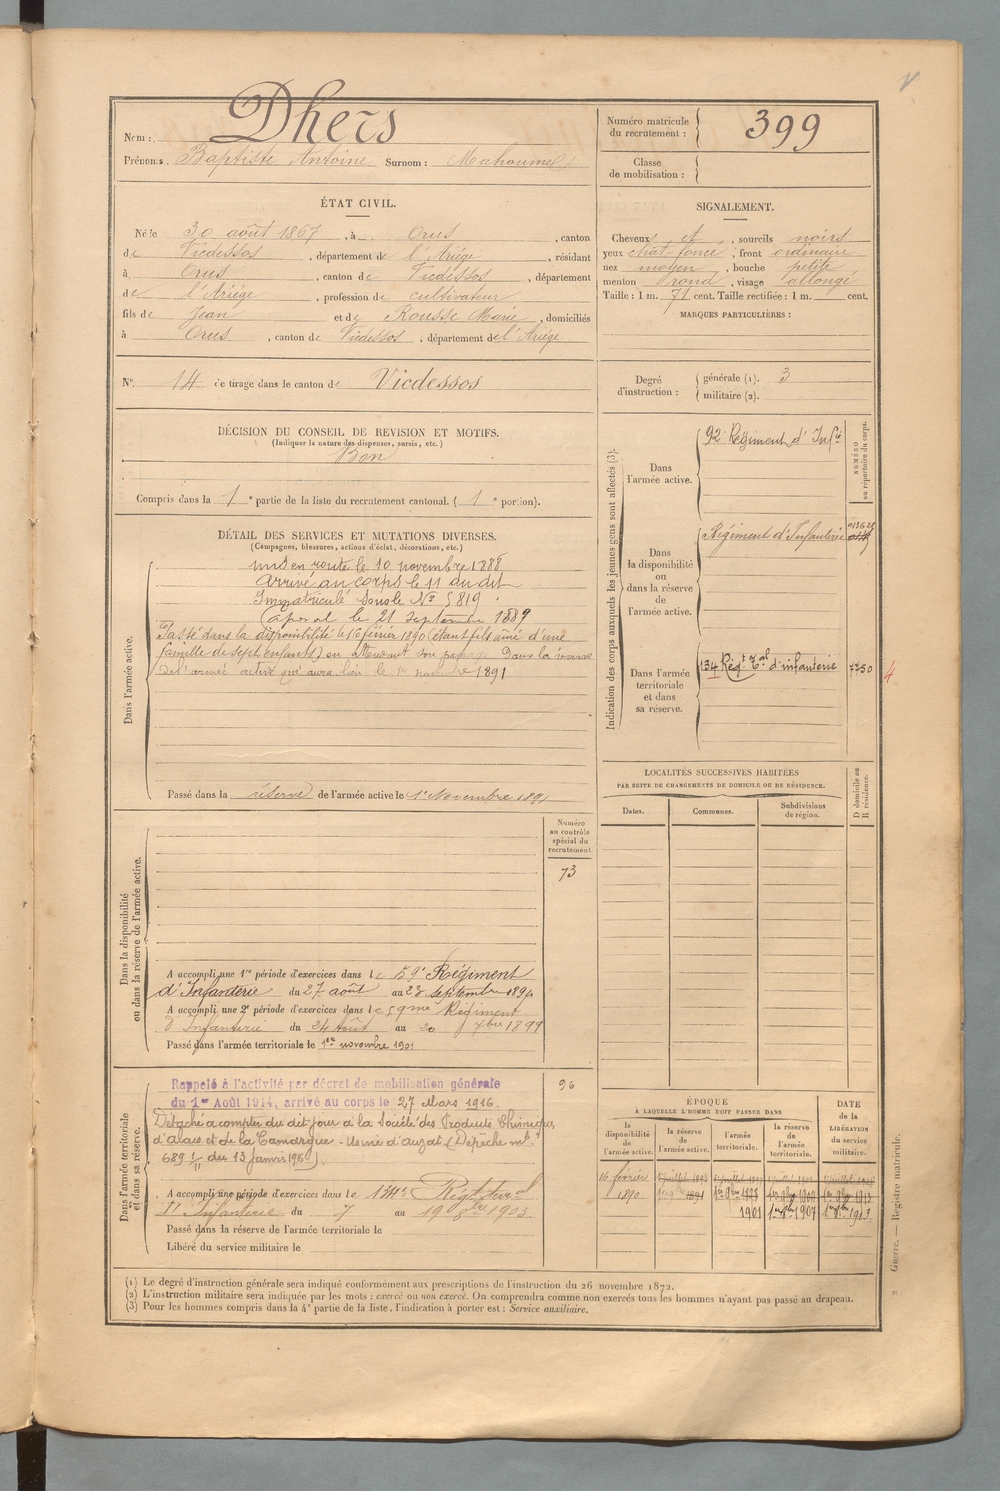 Nom : Dhers
Prénoms : Baptiste Antoine Surnom : Mahoumel
Numéro matricule du recrutement : 399
Classe de mobilisation :
ÉTAT CIVIL.
Né le 30 août 1867, à Orus, canton
de Vicdessos, département de l'Ariége, résidant
à Orus, canton de Vicdessos, département
de l'Ariége, profession de cultivateur
fils de Jean et de Rousse Marie, domiciliés
à Orus, canton de Vicdessos, département de l'Ariége
N° 14 de tirage dans le canton de Vicdessos
SIGNALEMENT.
Cheveux et, sourcils noirs
yeux chat. foncé, front ordinaire
nez moyen, bouche petite
menton rond, visage allongé
Taille : 1 m. 71 cent. Taille rectifiée : 1 m. cent.
MARQUES PARTICULIÈRES :
Degré d'instruction : générale (1). 3
militaire (2).
DÉCISION DU CONSEIL DE REVISION ET MOTIFS.
(Indiquer la nature des dispenses, sursis, etc.)
Bon
Compris dans la 1e partie de la liste du recrutement cantonal. (1e portion).
DÉTAIL DES SERVICES ET MUTATIONS DIVERSES.
(Campagnes, blessures, actions d'éclat, décorations, etc.)
Dans l'armée active.
mis en route le 10 novembre 1888
Arrivé au corps le 11 du dit
Immatriculé sous le N° 5819
Caporal le 21 septembre 1889
Passé dans la disponibilité le 16 février 1890 (étant fils ainé d'une
famille de sept enfants) en attendant son passage dans la réserve
de l'armée active qui aura lieu le 1er novembre 1891
Passé dans la réserve de l'armée active le 1er Novembre 1891
Indication des corps auxquels les jeunes gens sont affectés (3).
NUMÉRO au répertoire du corps.
Dans l'armée active.
92e Régiment d'Infie
Dans la disponibilité ou dans la réserve de l'armée active.
Régiment d'Infanterie
Dans l'armée territoriale et dans sa réserve.
134 Régt Tal d'infanterie 7750
4
LOCALITÉS SUCCESSIVES HABITÉES
PAR SUITE DE CHANGEMENTS DE DOMICILE OU DE RÉSIDENCE.
Dates. Communes. Subdivisions de région. D domicile ou R résidence.
Dans la disponibilité ou dans la réserve de l'armée active.
Numéro au contrôle spécial du recrutement
73
A accompli une 1re période d'exercices dans le 59e Régiment
d'Infanterie du 27 août au 23 septembre 1894
A accompli une 2e période d'exercices dans le 59me Régiment
d'Infanterie du 24 Août au 20 7bre 1899
Passé dans l'armée territoriale le 1er novembre 1901
Dans l'armée territoriale et dans sa réserve.
96
Rappelé à l'activité par décret de mobilisation générale
du 1er Août 1914, arrivé au corps le 27 Mars 1916.
Détaché à compter du dit jour à la Société des Produits Chimiques
d'Alais et de la Camargue - Usine d'Auzat (Dépêche mlle
A accompli une période d'exercices dans le 134e Régt terral
d'Infanterie du 7 au 19 8bre 1903
Passé dans la réserve de l'armée territoriale le
Libéré du service militaire le
ÉPOQUE
À LAQUELLE L'HOMME DOIT PASSER DANS
la disponibilité de l'armée active.
la réserve de l'armée active.
l'armée territoriale.
la réserve de l'armée territoriale.
DATE de la LIBÉRATION du service militaire.
16 février 1890
1901
1er 9bre 1907
1er 9bre 1913
(1) Le degré d'instruction générale sera indiqué conformément aux prescriptions de l'instruction du 26 novembre 1872.
(2) L'instruction militaire sera indiquée par les mots : exercé ou non exercé. On comprendra comme non exercés tous les hommes n'ayant pas passé au drapeau.
(3) Pour les hommes compris dans la 4e partie de la liste, l'indication à porter est : Service auxiliaire.
2 Guerre. — Registre matricule.